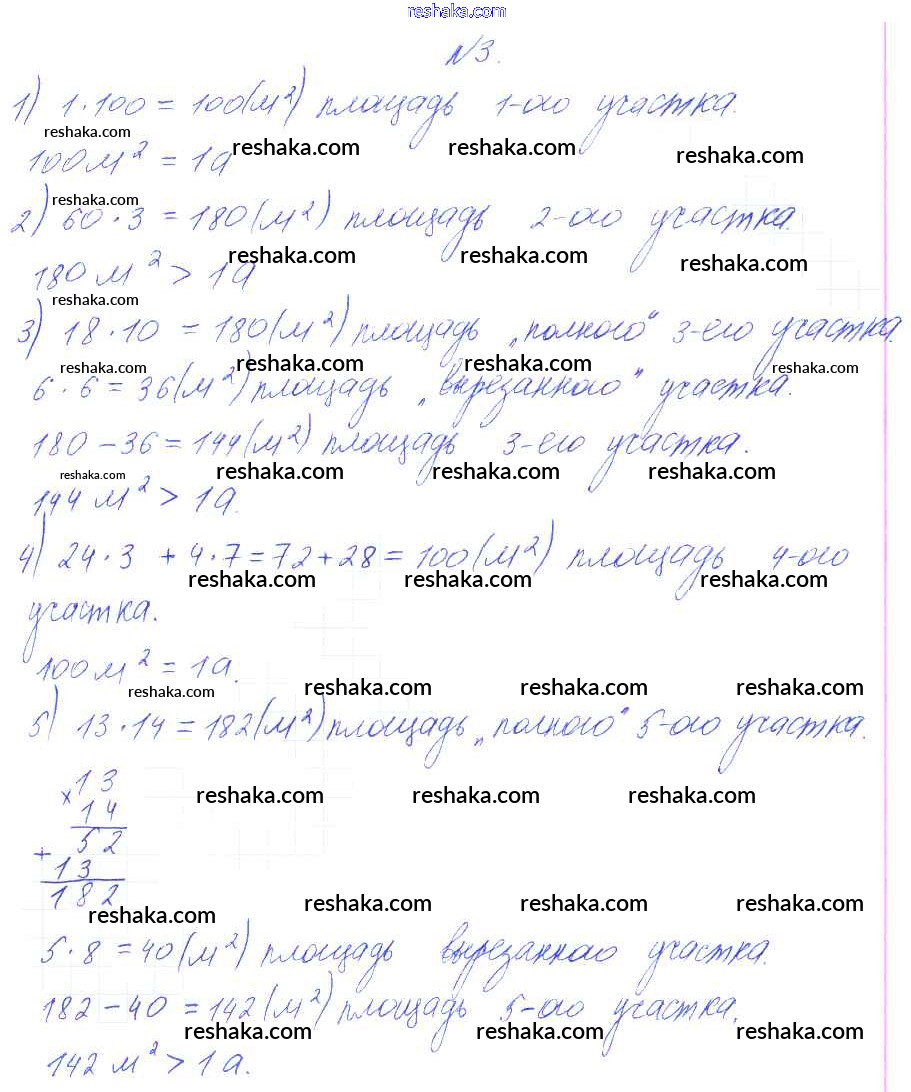 reshaka.com
№3.
1) 1·100 = 100(м²) площадь 1-ого участка.
reshaka.com
100 м² = 1а reshaka.com reshaka.com reshaka.com
reshaka.com
2) 60·3 = 180(м²) площадь 2-ого участка.
reshaka.com reshaka.com reshaka.com
180 м² > 1а
reshaka.com
3) 18·10 = 180(м²) площадь „полного“ 3-его участка.
reshaka.com reshaka.com reshaka.com
6·6 = 36(м²) площадь „вырезанного“ участка.
180 – 36 = 144(м²) площадь 3-его участка.
reshaka.com reshaka.com reshaka.com reshaka.com
144 м² > 1а.
4) 24·3 + 4·7 = 72 + 28 = 100(м²) площадь 4-ого
reshaka.com reshaka.com reshaka.com
участка.
100 м² = 1а.
reshaka.com reshaka.com reshaka.com reshaka.com
5) 13·14 = 182(м²) площадь „полного“ 5-ого участка.
× 13
reshaka.com reshaka.com reshaka.com
14
+ 52
13
182
reshaka.com reshaka.com reshaka.com reshaka.com
5·8 = 40(м²) площадь вырезанного участка.
182 – 40 = 142(м²) площадь 5-ого участка.
reshaka.com reshaka.com reshaka.com
142 м² > 1а.